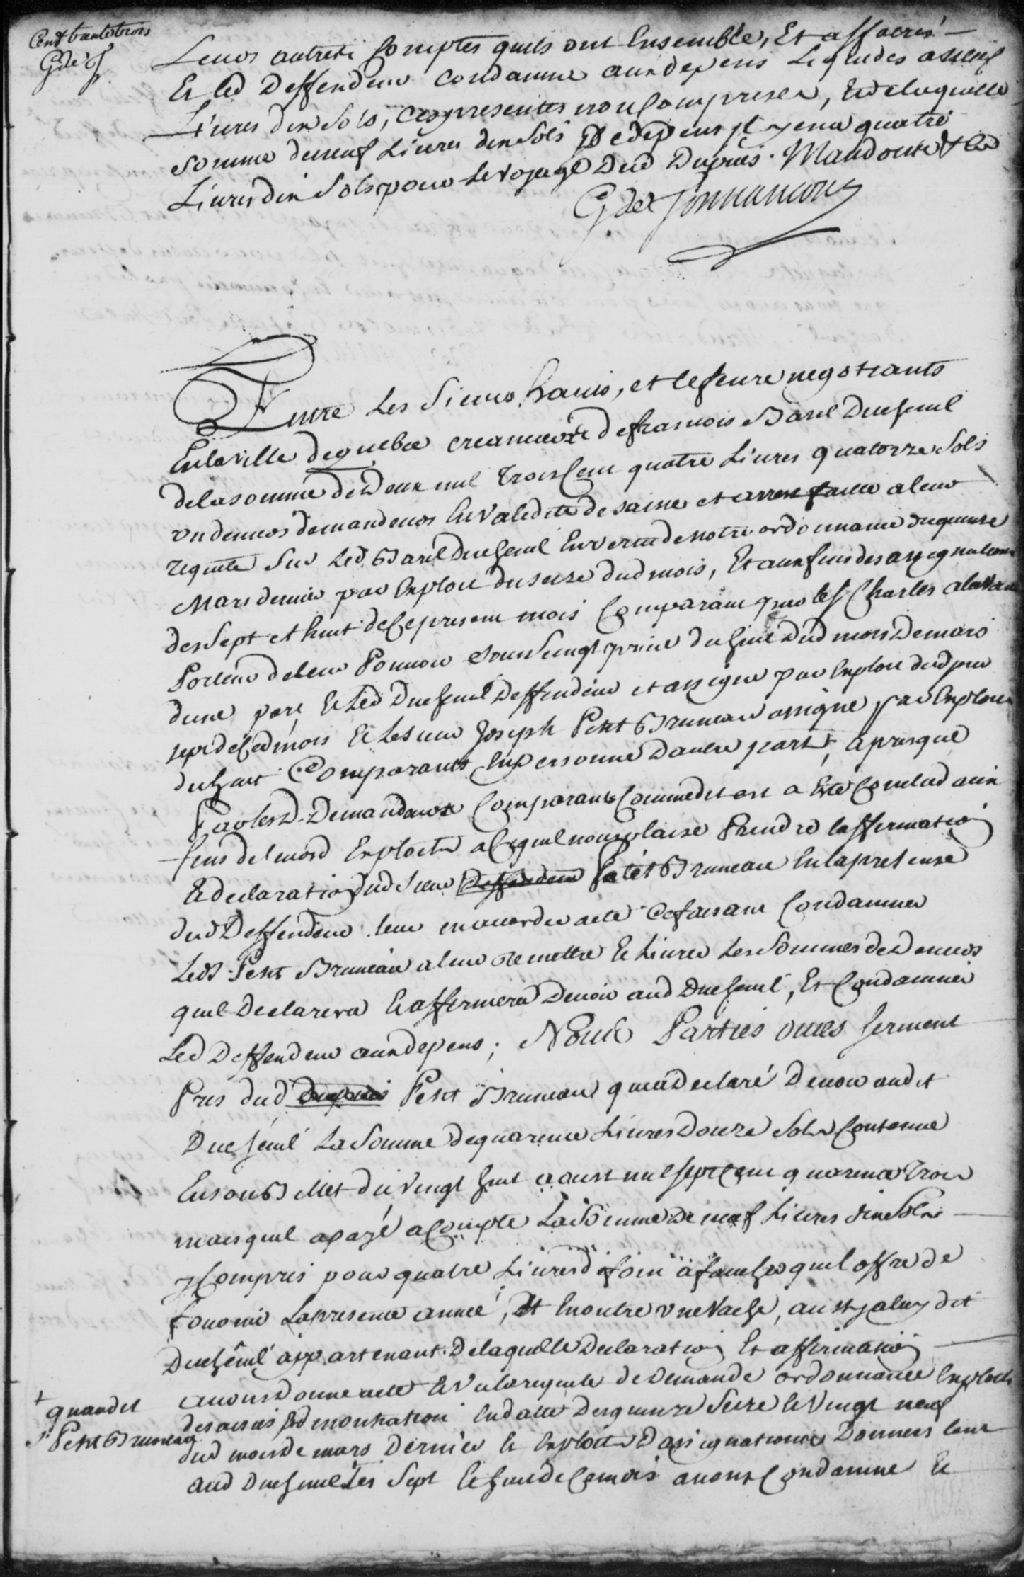 Cent trente trois
G de J
Leurs autres Comptes quils ont Ensemble, Et affaires
Et led Deffendeur Condamné aux depens Liquidés a neuf
Livres dix Sols, Ces presentes non Comprises, de laquelle
Somme de neuf Livres dix Sols De depens il y en a quatre
Livres dix Sols pour Le voyage Dud Dupuis. Mandons &c
G de Tonnancour
Entre Les Sieurs havis, et Lefevre negotiants
En la ville de quebec creanciers de francois Baril Duchenil
de la somme de Deux mil Trois Cent quatre Livres quatorze Sols
un deniers demandeurs En validité de saisie et arrest faitte a leur
requete Sur Led. Baril Duchenil En vertu de notre ordonnance du quinze
Mars dernier par Exploit du seize dud mois, Et aux fins des assignations
des Sept et huit de Ce present mois Comparant par le Sr Charles
Porteur de leur Pouvoir Sous Seing privé du Dud mois De mars
dune part Et Led Duchenil Deffendeur et assigné par Exploit dud jour
sept de Ced mois Et Le sieur Joseph Petit Bruneau assigné par Exploit
du huit Comparants En personne Dautre part, apres que
Par lesd. Demandeurs Comparant Comme dit est a Eté Conclud aux
fins desd Exploits a Ce quil nous plaise Prendre Laffirmation
Et declaration Dud Sieur Deffendeur Petit Bruneau En la presence
dud Deffendeur leur en accorder acte Ce faisant Condamner
Ledt Petit Bruneau a leur Remettre Et Livrer Les Sommes de Deniers
quil Declarera Et affirmera Devoir aud Duchenil, Et Condamner
Led Deffendeur aux depens; Nous Parties ouies Serment
Pris dud Dupuis Petit Bruneau qui a declaré Devoir audit
Duchenil La Somme de quarente Livres Douze Sols Contenue
En son Billet du vingt huit aoust mil sept Cent quarente Trois
mais quil a payé a Compte La Somme de neuf Livres dix Sols
y Compris pour quatre Livres de foin a faucher quil offre de
fournir La presente année, Et En outre une Vache, aussy aluy dit
Duchenil appartenant. De laquelle Declaration Et affirmation
avons donné acte Et vu la requete de Demande ordonnance Exploits
de saisie & denontiation En datte Des quinze Seize Et Vingt neuf
dud mois de mars Dernier Et Exploits Dassignations Donnés tant
aud Duchenil Les Sept Et huit de Ce mois avons Condamné Et
+ quaudit
Sr Petit Bruneau